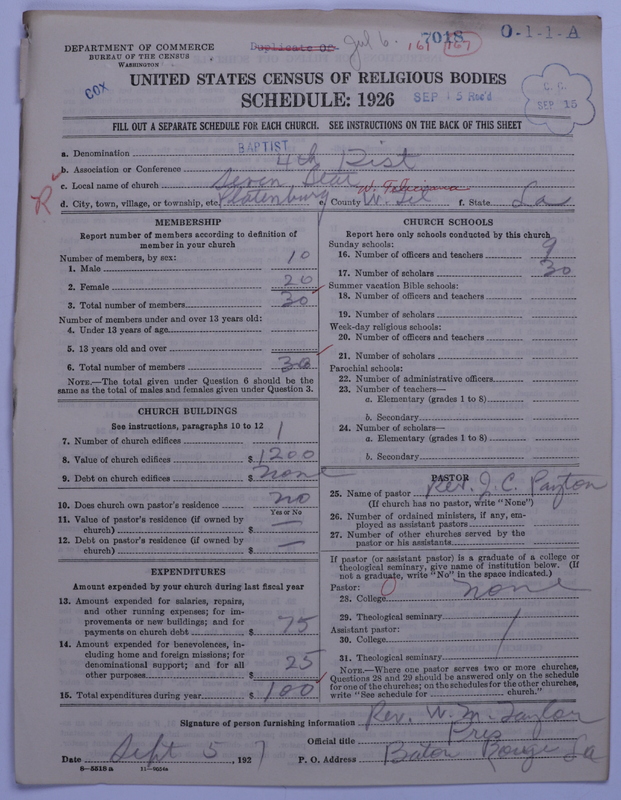 DEPARTMENT OF COMMERCE
BUREAU OF THE CENSUS
WASHINGTON
Duplicate Of
Jul 6-
161
167
7018
0-1-1-A
COX
UNITED STATES CENSUS OF RELIGIOUS BODIES
SCHEDULE: 1926
SEP 15 Rec'd
C. C.
SEP 15
FILL OUT A SEPARATE SCHEDULE FOR EACH CHURCH. SEE INSTRUCTIONS ON THE BACK OF THIS SHEET
a. Denomination BAPTIST
b. Association or Conference 4th Dist
c. Local name of church Seven Star
R
W. Feliciana
d. City, town, village, or township, etc. Platenburg County W. Fel f. State La
MEMBERSHIP
Report number of members according to definition of
member in your church
Number of members, by sex:
1. Male 10
2. Female 20
3. Total number of members 30
Number of members under and over 13 years old:
4. Under 13 years of age
5. 13 years old and over
6. Total number of members 30
NOTE.—The total given under Question 6 should be the
same as the total of males and females given under Question 3.
CHURCH BUILDINGS
See instructions, paragraphs 10 to 12
7. Number of church edifices 1
8. Value of church edifices $ 1200
9. Debt on church edifices $ none
10. Does church own pastor's residence no
Yes or No
11. Value of pastor's residence (if owned by
church) $ —
12. Debt on pastor's residence (if owned by
church) $ —
EXPENDITURES
Amount expended by your church during last fiscal year
13. Amount expended for salaries, repairs,
and other running expenses; for im-
provements or new buildings; and for
payments on church debt $ 75
14. Amount expended for benevolences, in-
cluding home and foreign missions; for
denominational support; and for all
other purposes $ 25
15. Total expenditures during year $ 100
CHURCH SCHOOLS
Report here only schools conducted by this church
Sunday schools:
16. Number of officers and teachers 9
17. Number of scholars 30
Summer vacation Bible schools:
18. Number of officers and teachers
19. Number of scholars
Week-day religious schools:
20. Number of officers and teachers
21. Number of scholars
Parochial schools:
22. Number of administrative officers
23. Number of teachers—
a. Elementary (grades 1 to 8)
b. Secondary
24. Number of scholars—
a. Elementary (grades 1 to 8)
b. Secondary
PASTOR
25. Name of pastor Rev. J. C. Payton
(If church has no pastor, write "None")
26. Number of ordained ministers, if any, em-
ployed as assistant pastors
27. Number of other churches served by the
pastor or his assistants
If pastor (or assistant pastor) is a graduate of a college or
theological seminary, give name of institution below. (If
not a graduate, write "No" in the space indicated.)
Pastor: 0
28. College none
29. Theological seminary
Assistant pastor:
30. College
31. Theological seminary
NOTE.—Where one pastor serves two or more churches,
Questions 28 and 29 should be answered only on the schedule
for one of the churches; on the schedules for the other churches,
write "See schedule for church."
Signature of person furnishing information Rev. W. M. Taylor
Official title Pres
Date Sept 5, 1927 P. O. Address Baton Rouge La
8-5518a 11-9034a